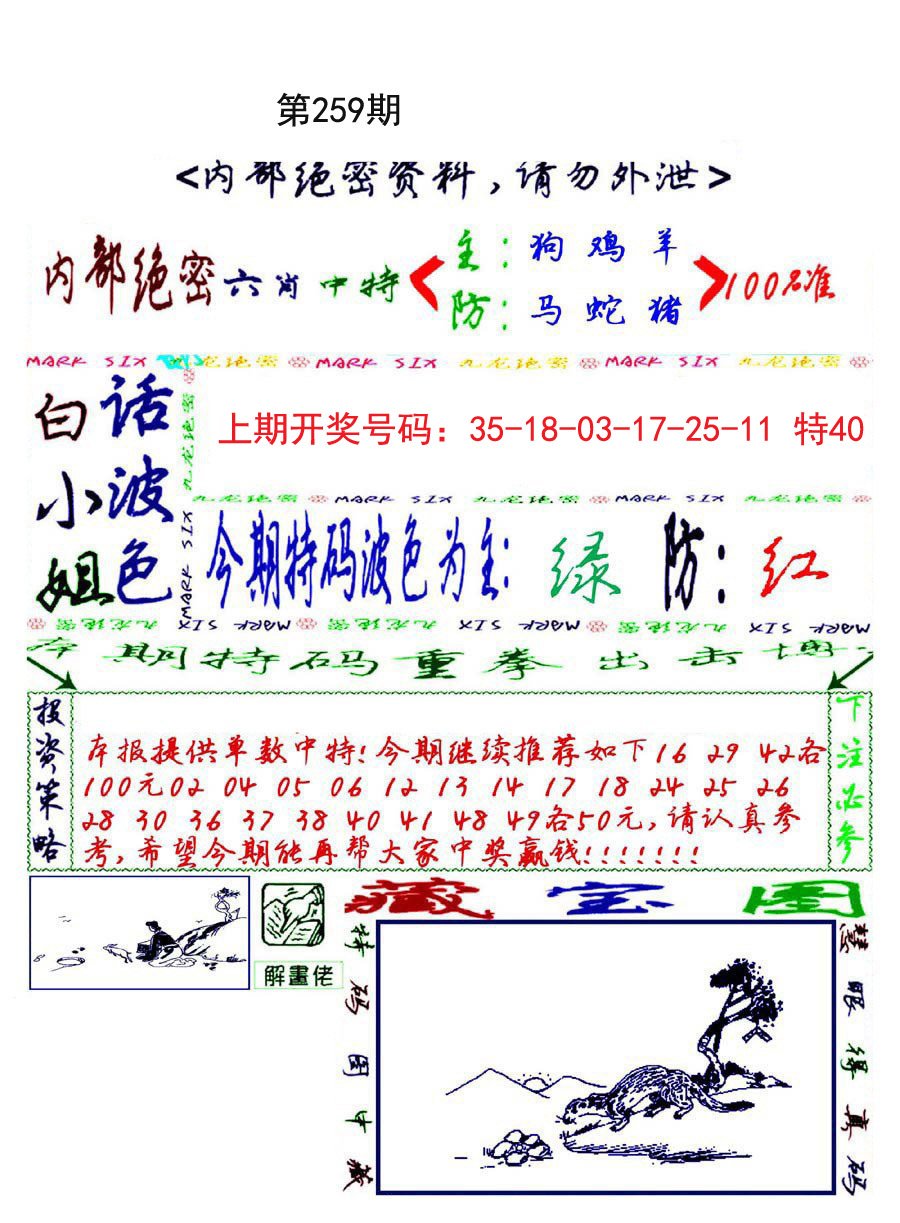 第259期
<内部绝密资料,请勿外泄>
内部绝密六肖中特
主:狗鸡羊
防:马蛇猪
100%准
MARK SIX 九龙绝密 MARK SIX 九龙绝密 MARK SIX 九龙绝密
白小姐
话波色
九龙绝密 MARK SIX
上期开奖号码：35-18-03-17-25-11 特40
九龙绝密 MARK SIX 九龙绝密 MARK SIX 九龙绝密
今期特码波色为主:绿 防:红
九龙绝密 MARK SIX 九龙绝密 MARK SIX 九龙绝密 MARK SIX
本期特码重拳出击
投资策略
本报提供单数中特!今期继续推荐如下16 29 42各
100元02 04 05 06 12 13 14 17 18 24 25 26
28 30 36 37 38 40 41 48 49各50元,请认真参
考,希望今期能再帮大家中奖赢钱!!!!!!!
下注必参
解畫佬
藏宝图
特码图中藏
慧眼得真码